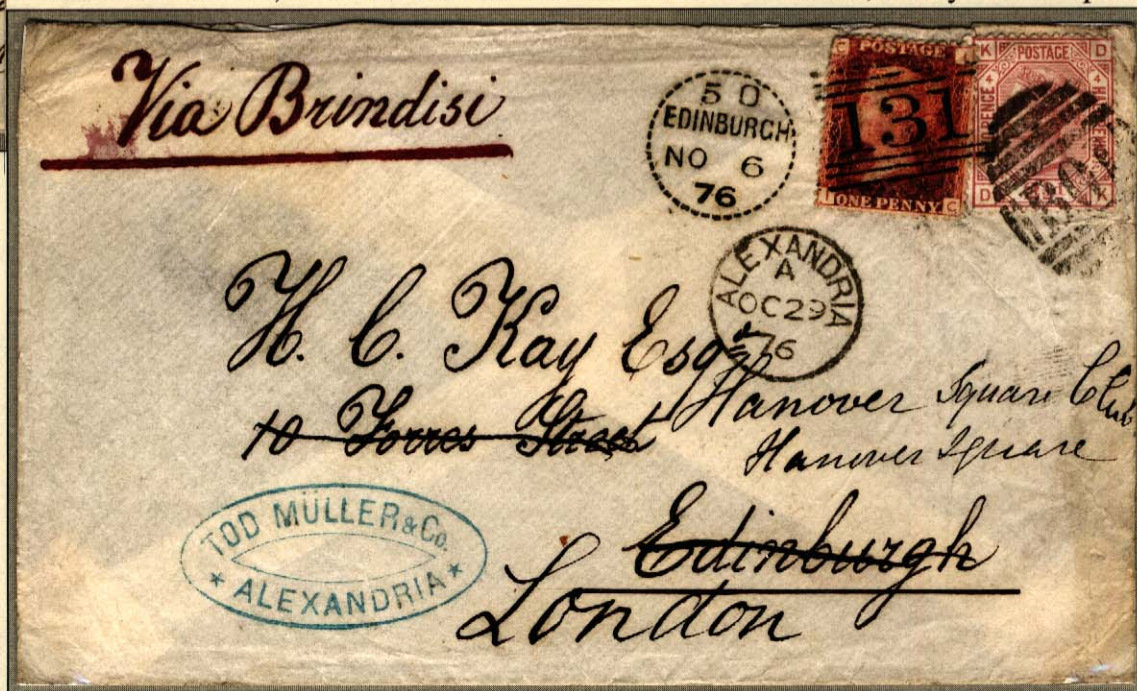 Via Brindisi
50
EDINBURGH
NO 6
76
C POSTAGE I
131
I ONE PENNY C
K POSTAGE D
D K
B01
ALEXANDRIA
A
OC 29
76
H. C. Kay Esqr
10 Forres Street
Hanover Square Club
Hanover Square
Edinburgh
London
TOD MÜLLER & Co.
* ALEXANDRIA *